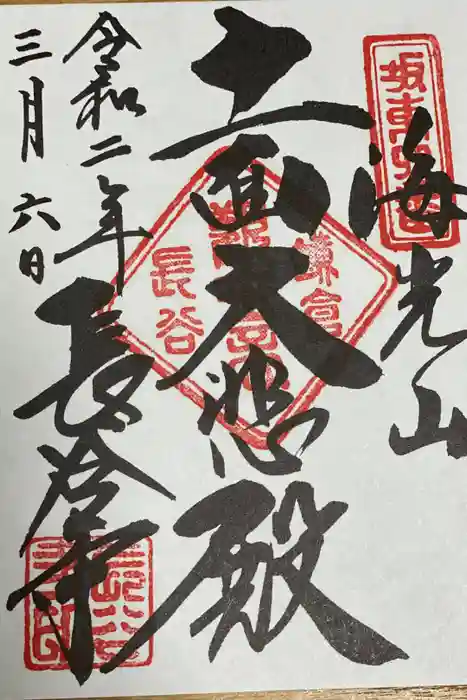 坂東四番
海光山
十一面大悲殿
鎌倉
長谷
長谷寺
令和二年
三月六日